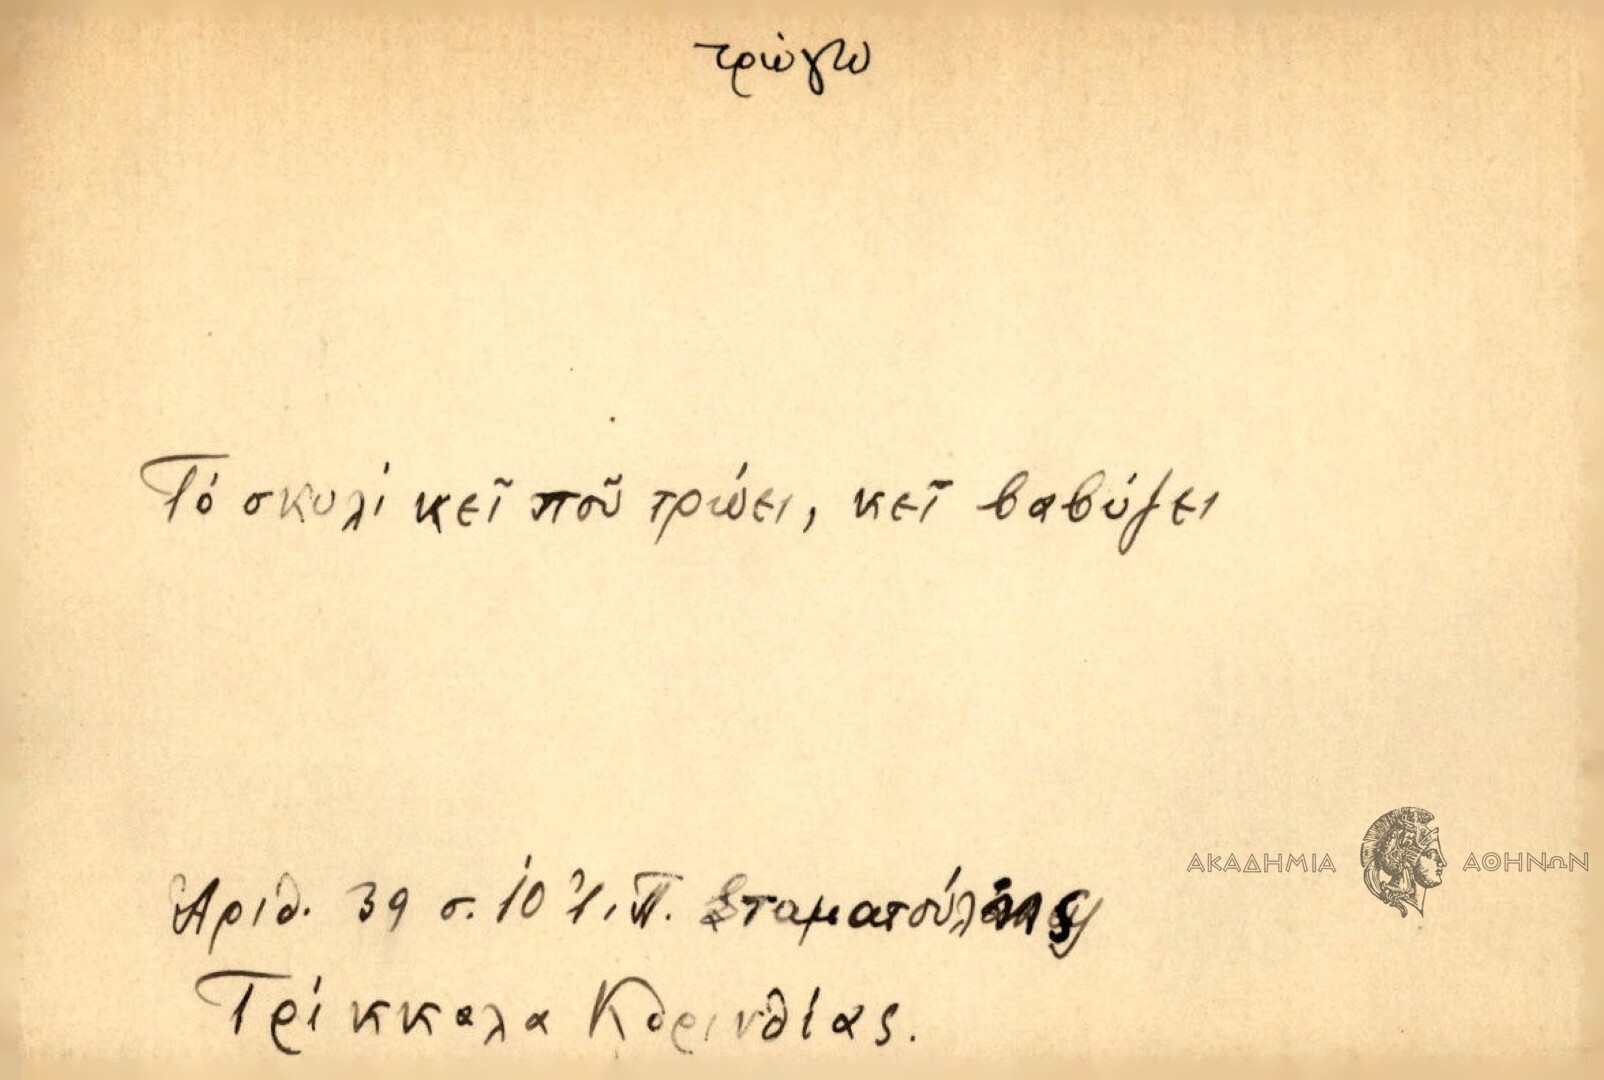 τρώγω
Τό σκυλί κεῖ ποῦ τρώει, κεῖ βαβύζει
ΑΚΑΔΗΜΙΑ ΑΘΗΝΩΝ
Ἀριθ. 39 σ. 10 Ἰ. Π. Σταματούλης
Τρίκκαλα Κορινθίας.